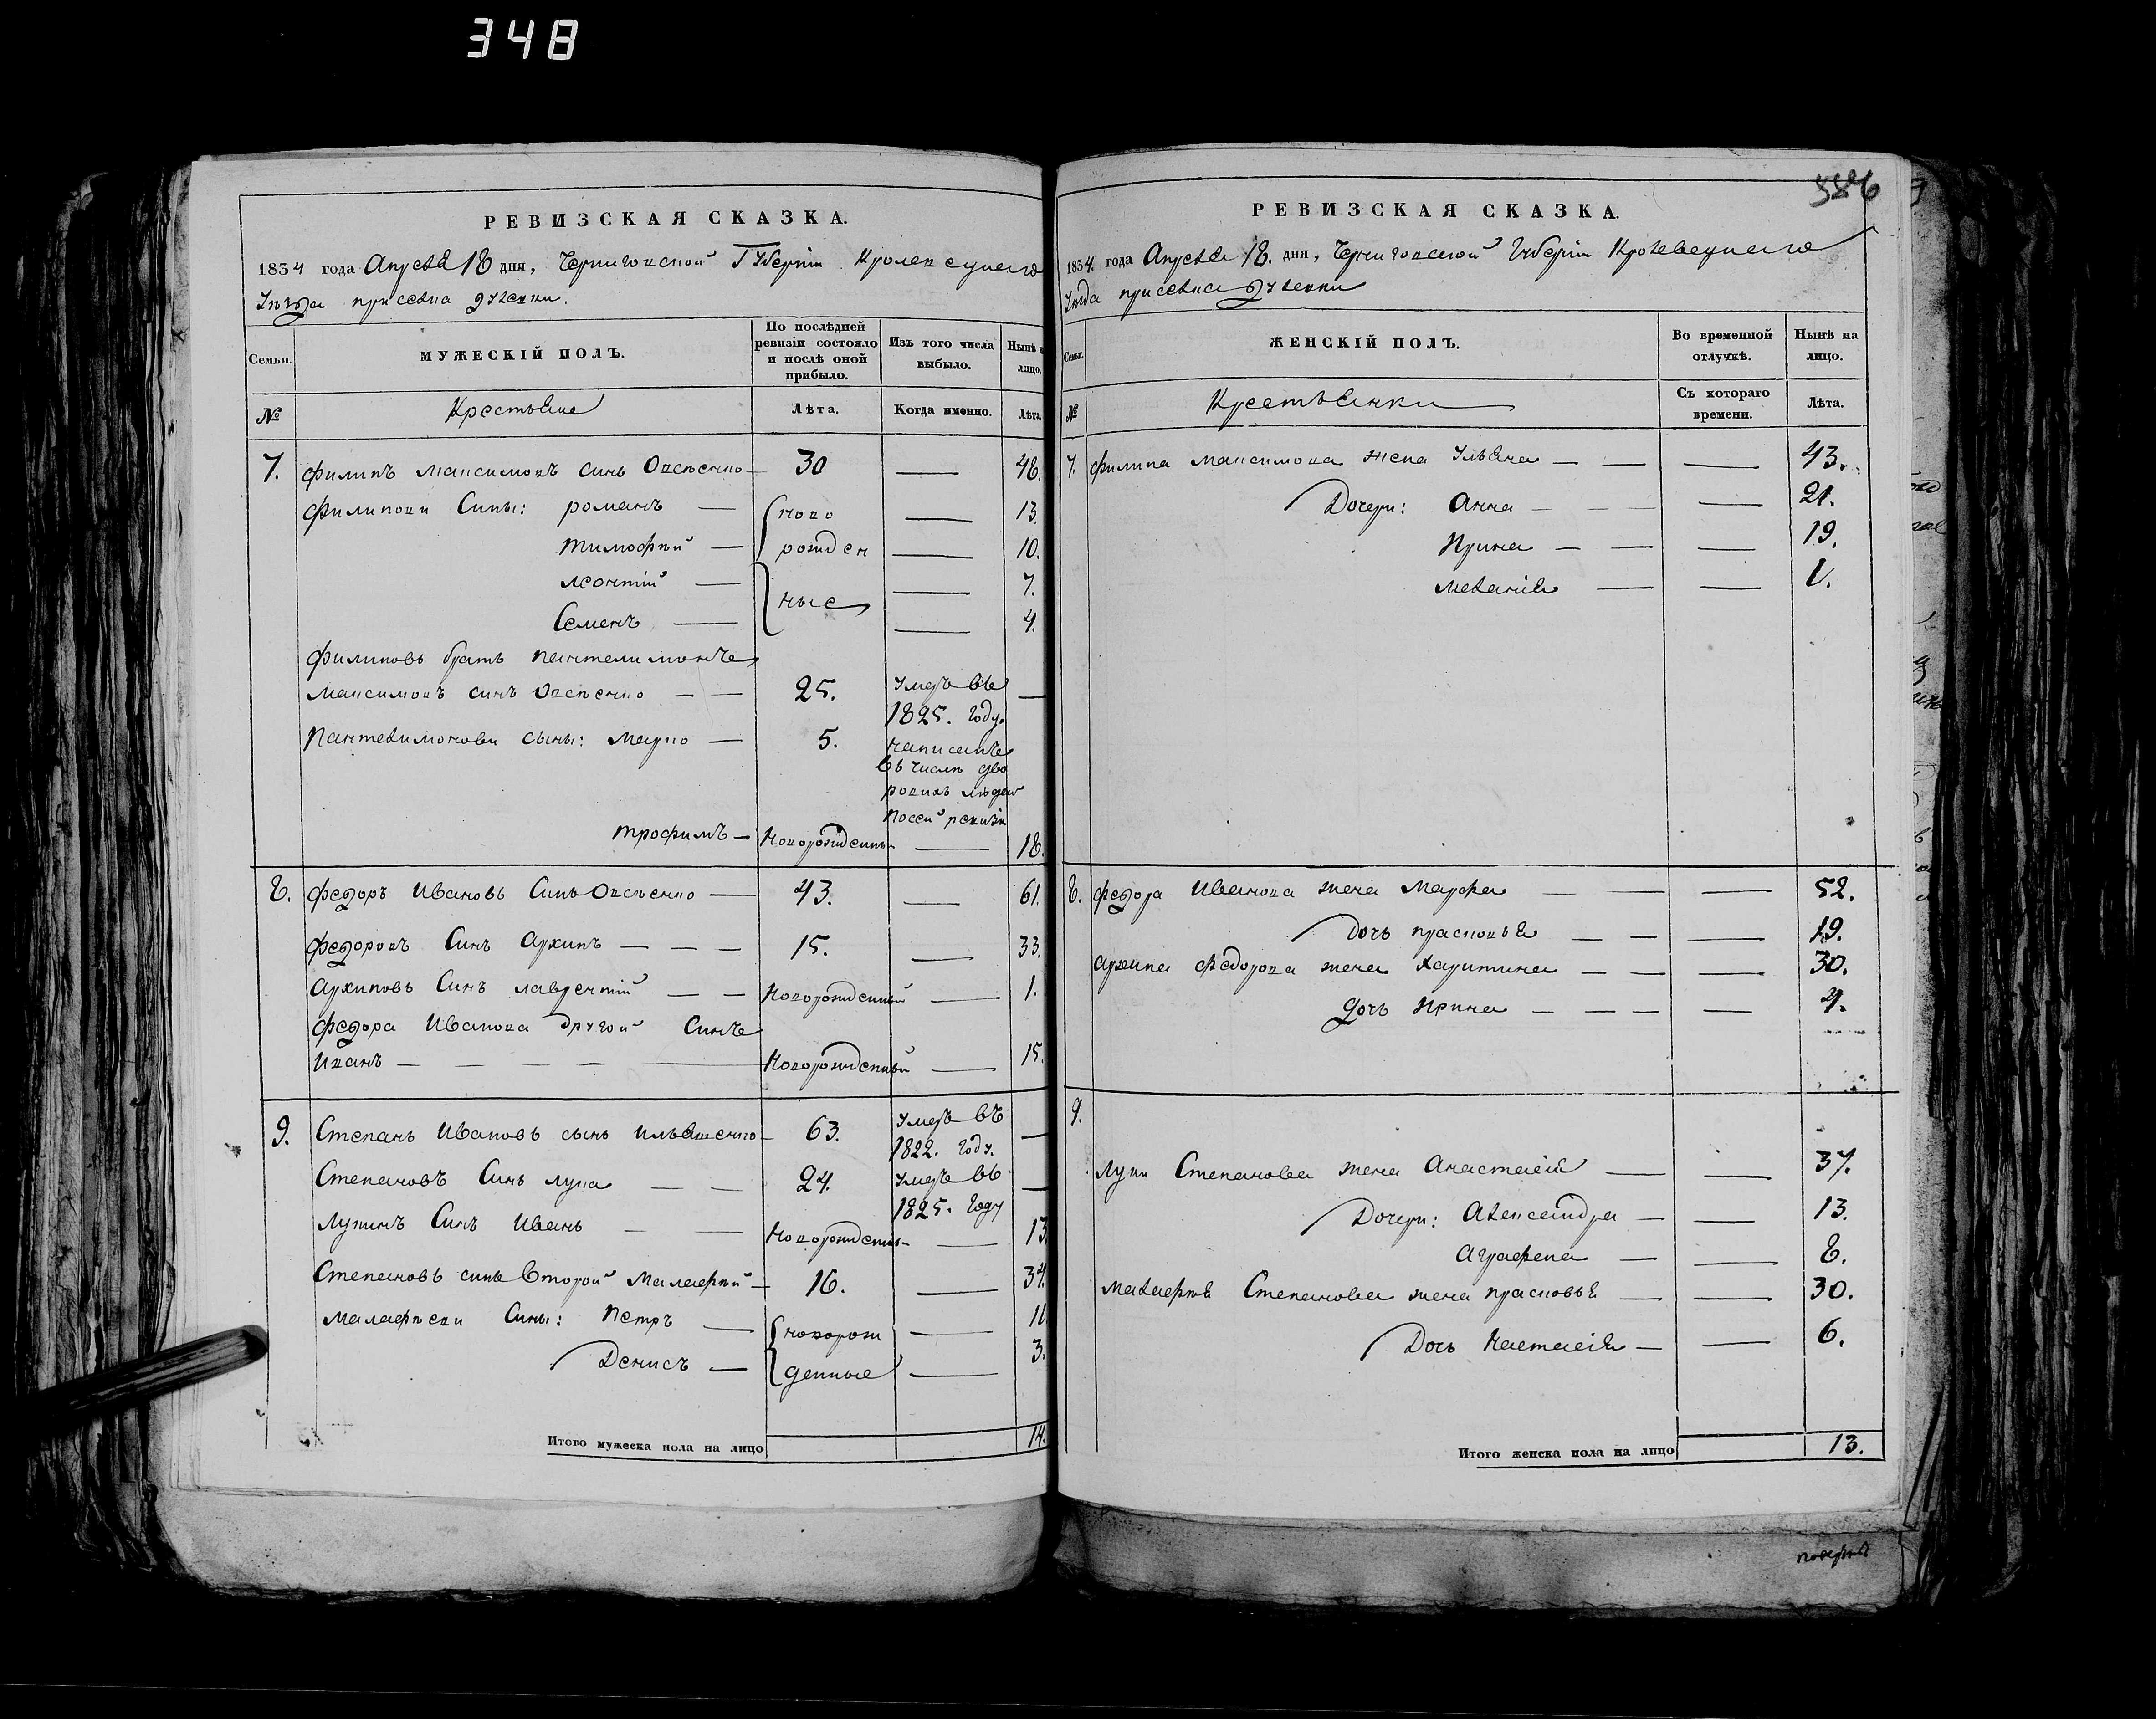 348
РЕВИЗСКАЯ СКАЗКА.
1854 года Апреля 18 дня, Черниговской Губерніи Кролевецкаго
Уѣзда приселка
МУЖЕСКІЙ ПОЛЪ.
Семьи.
По послѣдней ревизіи состояло и послѣ оной прибыло.
Изъ того числа выбыло.
Нынѣ н лицо.
№
Крестьяне
Лѣта.
Когда именно.
Лѣта.
7. Филипъ Максимовъ синъ Овсѣенко — 30 — 48.
Филипови Сины: романъ — ново — 13.
тимофѣй — рожден — 10.
леонтій — ные — 7.
Семенъ — — 4.
Филиповъ братъ пантелимонъ
Максимовъ синъ Овсѣенко — — 25. Умеръ въ —
1825. году.
Пантелимонови сыны: Марко — 5. написанъ
въ числѣ дво
ровихъ людей
посей ревизи
трофимъ — Новорожденны — 18.
8. Федоръ Ивановъ Синъ Овсѣенко — 43. — 61.
Федоровъ Синъ Архипъ — — — 15. — 33.
Архиповъ Синъ лаврентій — — Новорожденный — 1.
Федора Иванова другой Синъ
Иванъ — — — — Новорожденный — 15.
9. Степанъ Ивановъ сынъ Ильяшенко — 63. Умеръ въ —
1822. году.
Степановъ Синъ лупа — — 24. Умеръ въ —
1825. Году
Лупинъ Синъ Иванъ — — Новорожденны — 13.
Степановъ синъ Второй Малафѣй — 16. — 34.
Малафѣеви Сины: Петръ — новорож — 11.
Денисъ — денные — 3.
Итого мужеска пола на лицо 14.
РЕВИЗСКАЯ СКАЗКА.
1854. года Апреля 18. дня, Черниговской Губерніи Кролевецкаго
Уѣзда приселка
ЖЕНСКІЙ ПОЛЪ.
Семьи.
Во временной отлучкѣ.
Нынѣ на лицо.
№
Крестьянки
Съ котораго времени.
Лѣта.
7. Филипа Максимова жена Ульяна — — — 43.
Дочери: Анна — — — — 21.
Ирина — — — 19.
Меланія — — 1.
8. Федора Иванова жена Марфа — — — 52.
Дочь прасковья — — — 19.
Архипа Федорова жена Харитина — — — 30.
Дочь Ирина — — — — 4.
9.
Лупи Степанова жена Анастасія — — 37.
Дочери: Александра — — 13.
Аграфена — — 8.
Малафѣя Степанова жена прасковья — — 30.
Дочь Настасія — — 6.
Итого женска пола на лицо 13.